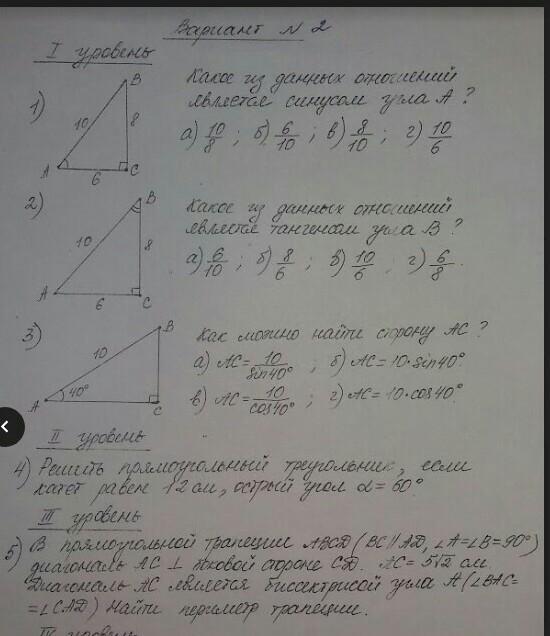 Вариант N 2
I уровень
1)
Какое из данных отношений
является синусом угла A ?
а) 10/8 ; б) 6/10 ; в) 8/10 ; г) 10/6
B
10
8
A
6
C
2)
Какое из данных отношений
является тангенсом угла B ?
а) 6/10 ; б) 8/6 ; в) 10/6 ; г) 6/8.
B
10
8
A
6
C
3)
Как можно найти сторону AC ?
а) AC = 10/sin40° ; б) AC = 10·sin40°.
в) AC = 10/cos40° ; г) AC = 10·cos40°.
B
10
A
40°
C
II уровень
4) Решить прямоугольный треугольник, если
катет равен 12 см, острый угол α = 60°.
III уровень
5) В прямоугольной трапеции ABCD (BC || AD, ∠A=∠B=90°)
диагональ AC ⊥ боковой стороне СД. AC = 5√2 см.
Диагональ AC является биссектрисой угла A (∠BAC=
=∠CAD) Найти периметр трапеции.
IV уровень